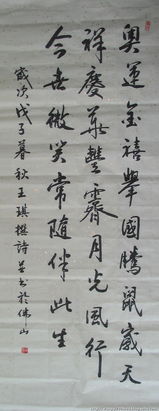 奥運金禧舉國騰鼠歲天
祥慶華豐霽月光風行
今世微笑常隨伴此生
歲次戊子暮秋王琪撰詩並书於佛山